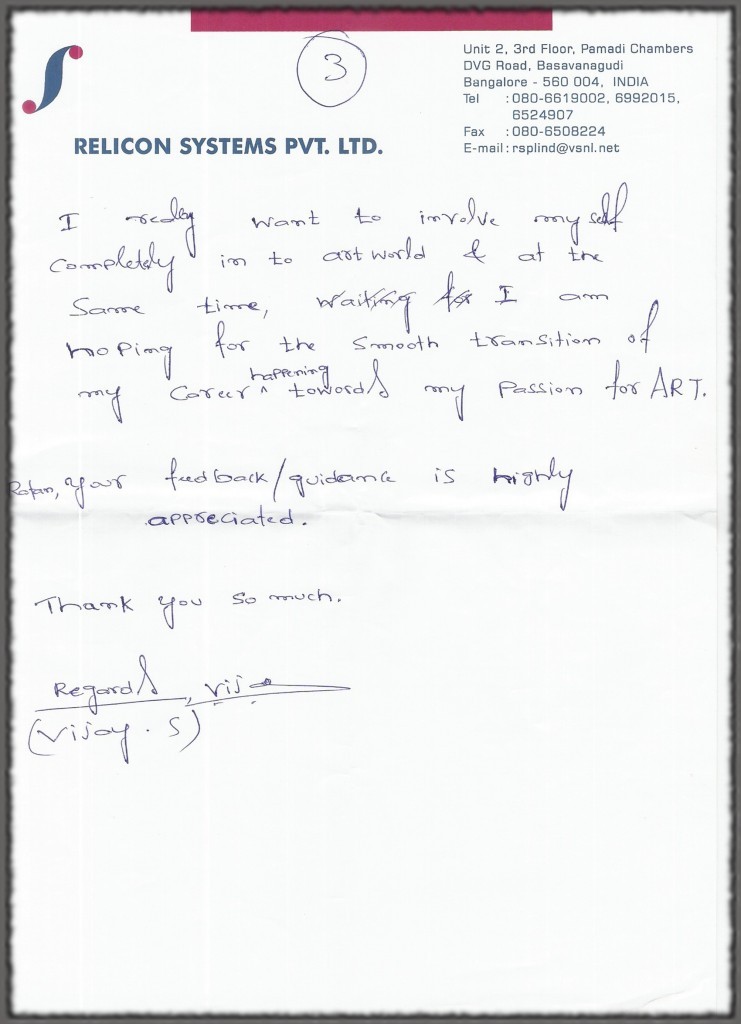 3
Unit 2, 3rd Floor, Pamadi Chambers
DVG Road, Basavanagudi
Bangalore - 560 004, INDIA
Tel : 080-6619002, 6992015,
6524907
Fax : 080-6508224
E-mail : rsplind@vsnl.net
RELICON SYSTEMS PVT. LTD.
I really want to involve my self
completely in to art world & at the
same time, waiting for I am
hoping for the smooth transition of
my career ^ happening towards my passion for ART.
your feedback/guidance is highly
appreciated.
Thank you so much.
Regards, Vijay
(Vijay . S)